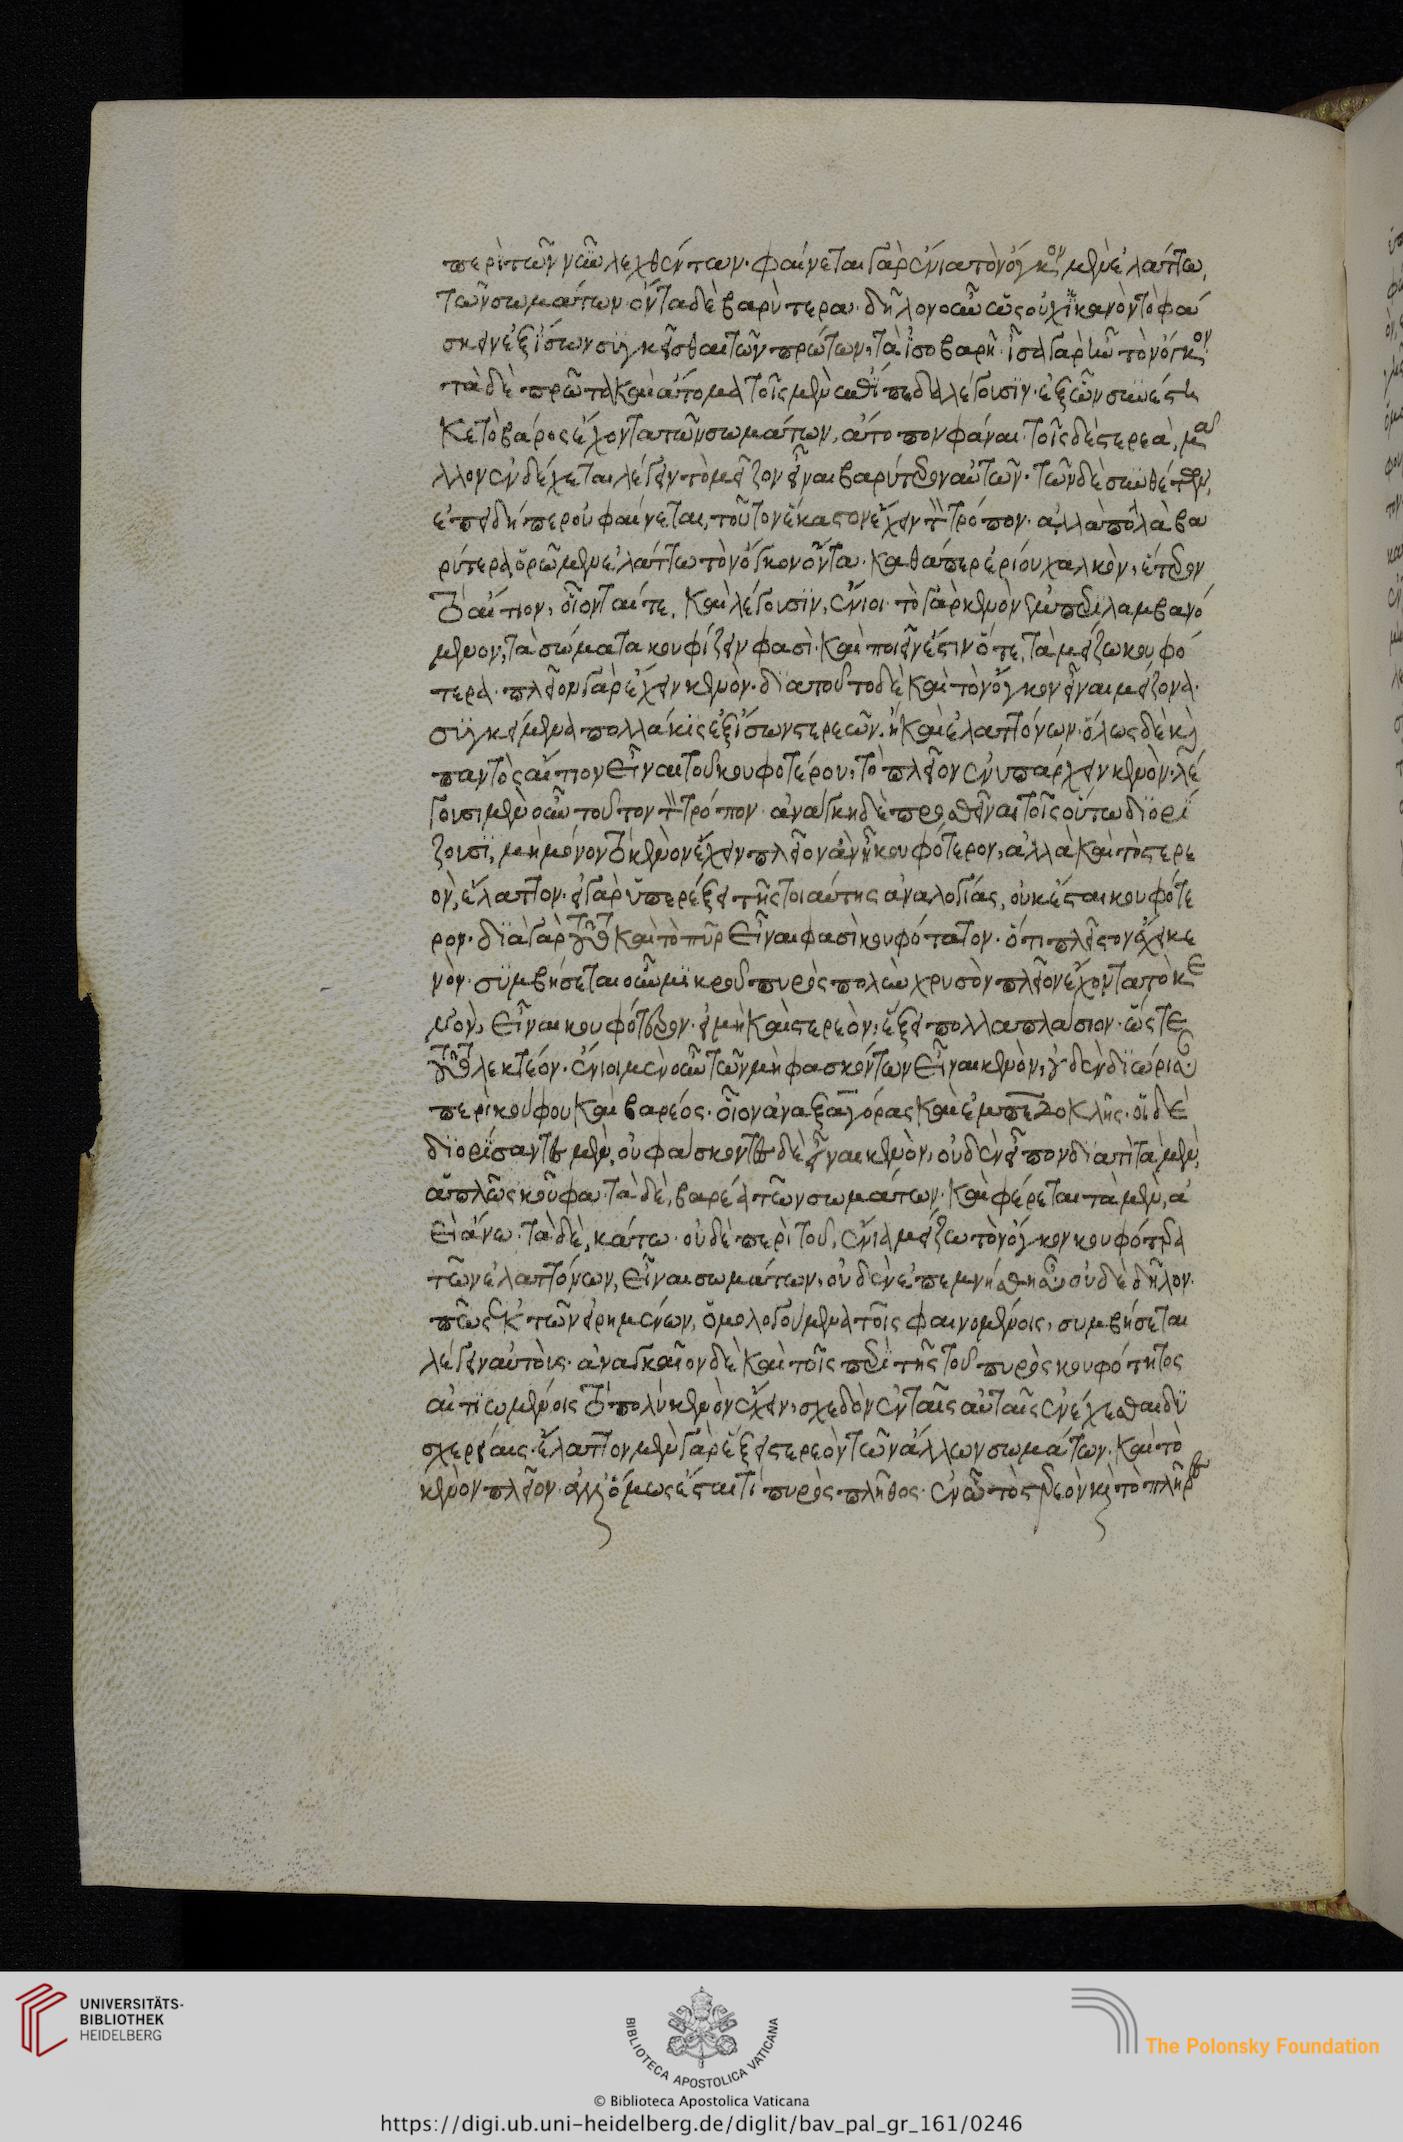 περὶ τῶν νῦν λεχθέντων· φαίνεται γὰρ ἔνια τὸν ὄγκον μὲν ἐλάττω,
τῶν σωμάτων ὄντα δὲ βαρύτερα· δῆλον οὖν ὡς οὐχ ἱκανὸν τὸ φά
σκειν ἐξ ἴσων συγκεῖσθαι τῶν πρώτων, τὰ ἰσοβαρῆ· ἴσα γὰρ ἦν τὸν ὄγκον·
τὰ δὲ πρῶτα καὶ ἄτομα τοῖς μὲν ἐπίπεδα λέγουσιν· ἐξ ὧν συνέστη
κε τὸ βάρος ἔχοντα τῶν σωμάτων, ἄτοπον φάναι· τοῖς δὲ στερεὰ, μᾶ
λλον ἐνδέχεται λέγειν τὸ μεῖζον εἶναι βαρύτερον αὐτῶν· τῶν δὲ συνθέτων,
ἐπειδήπερ οὐ φαίνεται, τοῦτον ἕκαστον ἔχειν τὸν τρόπον· ἀλλὰ πολλὰ βα
ρύτερα ὁρῶμεν ἐλάττω τὸν ὄγκον ὄντα· καθάπερ ἐρίου χαλκὸν, ἕτερον
τὸ αἴτιον, οἴονταί τε, καὶ λέγουσιν, ἔνιοι· τὸ γὰρ κενὸν ἐμπεριλαμβανό
μενον, τὰ σώματα κουφίζειν φασὶ· καὶ ποιεῖν ἔστιν ὅτε, τὰ μείζω κουφό
τερα· πλεῖον γὰρ ἔχειν κενὸν· διὰ τοῦτο δὲ καὶ τὸν ὄγκον εἶναι μείζονα·
συγκείμενα πολλάκις ἐξ ἴσων στερεῶν· ἢ καὶ ἐλαττόνων· ὅλως δὲ καὶ
παντὸς αἴτιον εἶναι τοῦ κουφοτέρου, τὸ πλεῖον ἐνυπάρχειν κενὸν· λέ
γουσι μὲν οὖν τοῦτον τὸν τρόπον· ἀνάγκη δὲ προσθεῖναι τοῖς οὕτω διορί
ζουσι, μὴ μόνον τὸ κενὸν ἔχειν πλεῖον ἂν ᾖ κουφότερον, ἀλλὰ καὶ τὸ στερε
ὸν, ἔλαττον· εἰ γὰρ ὑπερέξει τῆς τοιαύτης ἀναλογίας, οὐκ ἔσται κουφότε
ρον· διὰ γὰρ τοῦτο καὶ τὸ πῦρ εἶναι φασὶ κουφότατον· ὅτι πλεῖστον ἔχει κε
νὸν· συμβήσεται οὖν μικροῦ πυρὸς πολὺν χρυσὸν πλεῖον ἔχοντα τὸ κε
νὸν, εἶναι κουφότερον· εἰ μὴ καὶ στερεὸν, ἕξει πολλαπλάσιον· ὥστε
τοῦτο λεκτέον· ἔνιοι μὲν οὖν τῶν μὴ φασκόντων εἶναι κενὸν, οὐδὲν διώρισαν
περὶ κούφου καὶ βαρέος· οἷον ἀναξαγόρας καὶ ἐμπεδοκλῆς· οἱ δὲ
διορίσαντες μὲν, οὐ φάσκοντες δὲ εἶναι κενὸν, οὐδὲν εἶπον διατί τὰ μὲν,
ἁπλῶς κοῦφα· τὰ δὲ, βαρέα τῶν σωμάτων· καὶ φέρεται τὰ μὲν, ἀ
εὶ ἄνω· τὰ δὲ, κάτω· οὐδὲ περὶ τοῦ, ἔνια μείζω τὸν ὄγκον κουφότερα
τῶν ἐλαττόνων, εἶναι σωμάτων, οὐδὲν ἐπεμνήσθησαν οὐδὲ δῆλον·
πῶς ἐκ τῶν εἰρημένων, ὁμολογούμενα τοῖς φαινομένοις, συμβήσεται
λέγειν αὐτοὺς· ἀναγκαῖον δὲ καὶ τοῖς περὶ τῆς τοῦ πυρὸς κουφότητος
αἰτιωμένοις τὸ πολὺ κενὸν ἔχειν, σχεδὸν ἐν ταῖς αὐταῖς ἐνέχεσθαι δυ
σχερείαις· ἔλαττον μὲν γὰρ ἕξει στερεὸν τῶν ἄλλων σωμάτων· καὶ τὸ
κενὸν πλεῖον· ἀλλ' ὅμως ἔσται τι πυρὸς πλῆθος· ἐν ᾧ τὸ στερεὸν καὶ τὸ πλῆρες
UNIVERSITÄTS-
BIBLIOTHEK
HEIDELBERG
BIBLIOTECA APOSTOLICA VATICANA
The Polonsky Foundation
© Biblioteca Apostolica Vaticana
https://digi.ub.uni-heidelberg.de/diglit/bav_pal_gr_161/0246